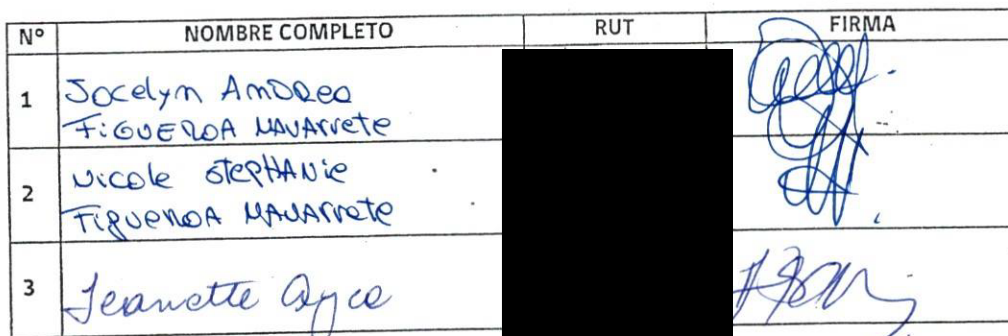 Nº NOMBRE COMPLETO RUT FIRMA
1 Jocelyn Andrea
Figueroa Navarrete
2 Nicole Stephanie
Figueroa Navarrete
3 Jeanette